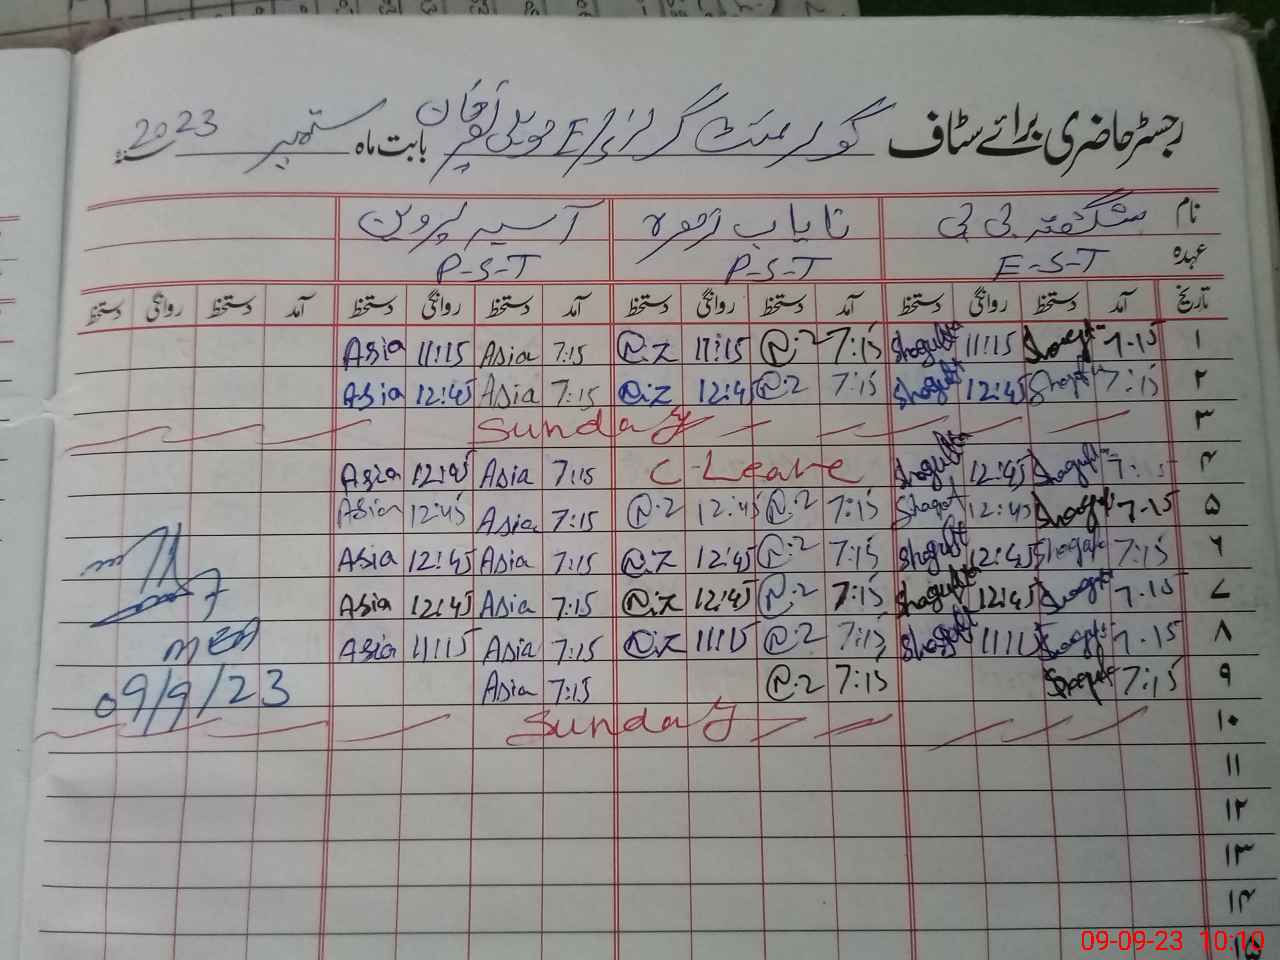 رجسٹر حاضری برائے سٹاف گورنمنٹ گرلز E/S حویلی بابت ماہ ستمبر 2023
نام شگفتہ بی بی نایاب زہرہ آسیہ پروین
عہدہ E-S-T P-S-T P-S-T
تاریخ آمد دستخط روانگی دستخط آمد دستخط روانگی دستخط آمد دستخط روانگی دستخط آمد دستخط روانگی دستخط
۱ 7:15 11:15 Shagufta 7:15 N.Z 11:15 N.Z 7:15 Asia 11:15 Asia
۲ 7:15 12:45 Shagufta 7:15 N.Z 12:45 N.Z 7:15 Asia 12:45 Asia
۳ Sunday
۴ 7:15 Shagufta 12:45 Shagufta C-Leave 7:15 Asia 12:45 Asia
۵ 7:15 12:45 7:15 N.Z 12:45 N.Z 7:15 Asia 12:45 Asia
۶ 7:15 12:45 Shagufta 7:15 N.Z 12:45 N.Z 7:15 Asia 12:45 Asia
۷ 7:15 12:45 Shagufta 7:15 N.Z 12:45 N.Z 7:15 Asia 12:45 Asia
۸ 7:15 11:15 Shagufta 7:15 N.Z 11:15 N.Z 7:15 Asia 11:15 Asia
MEA
۹ 7:15 7:15 N.Z 7:15 Asia
09/9/23
۱۰ Sunday
۱۱
۱۲
۱۳
۱۴
۱۵
09-09-23 10:10